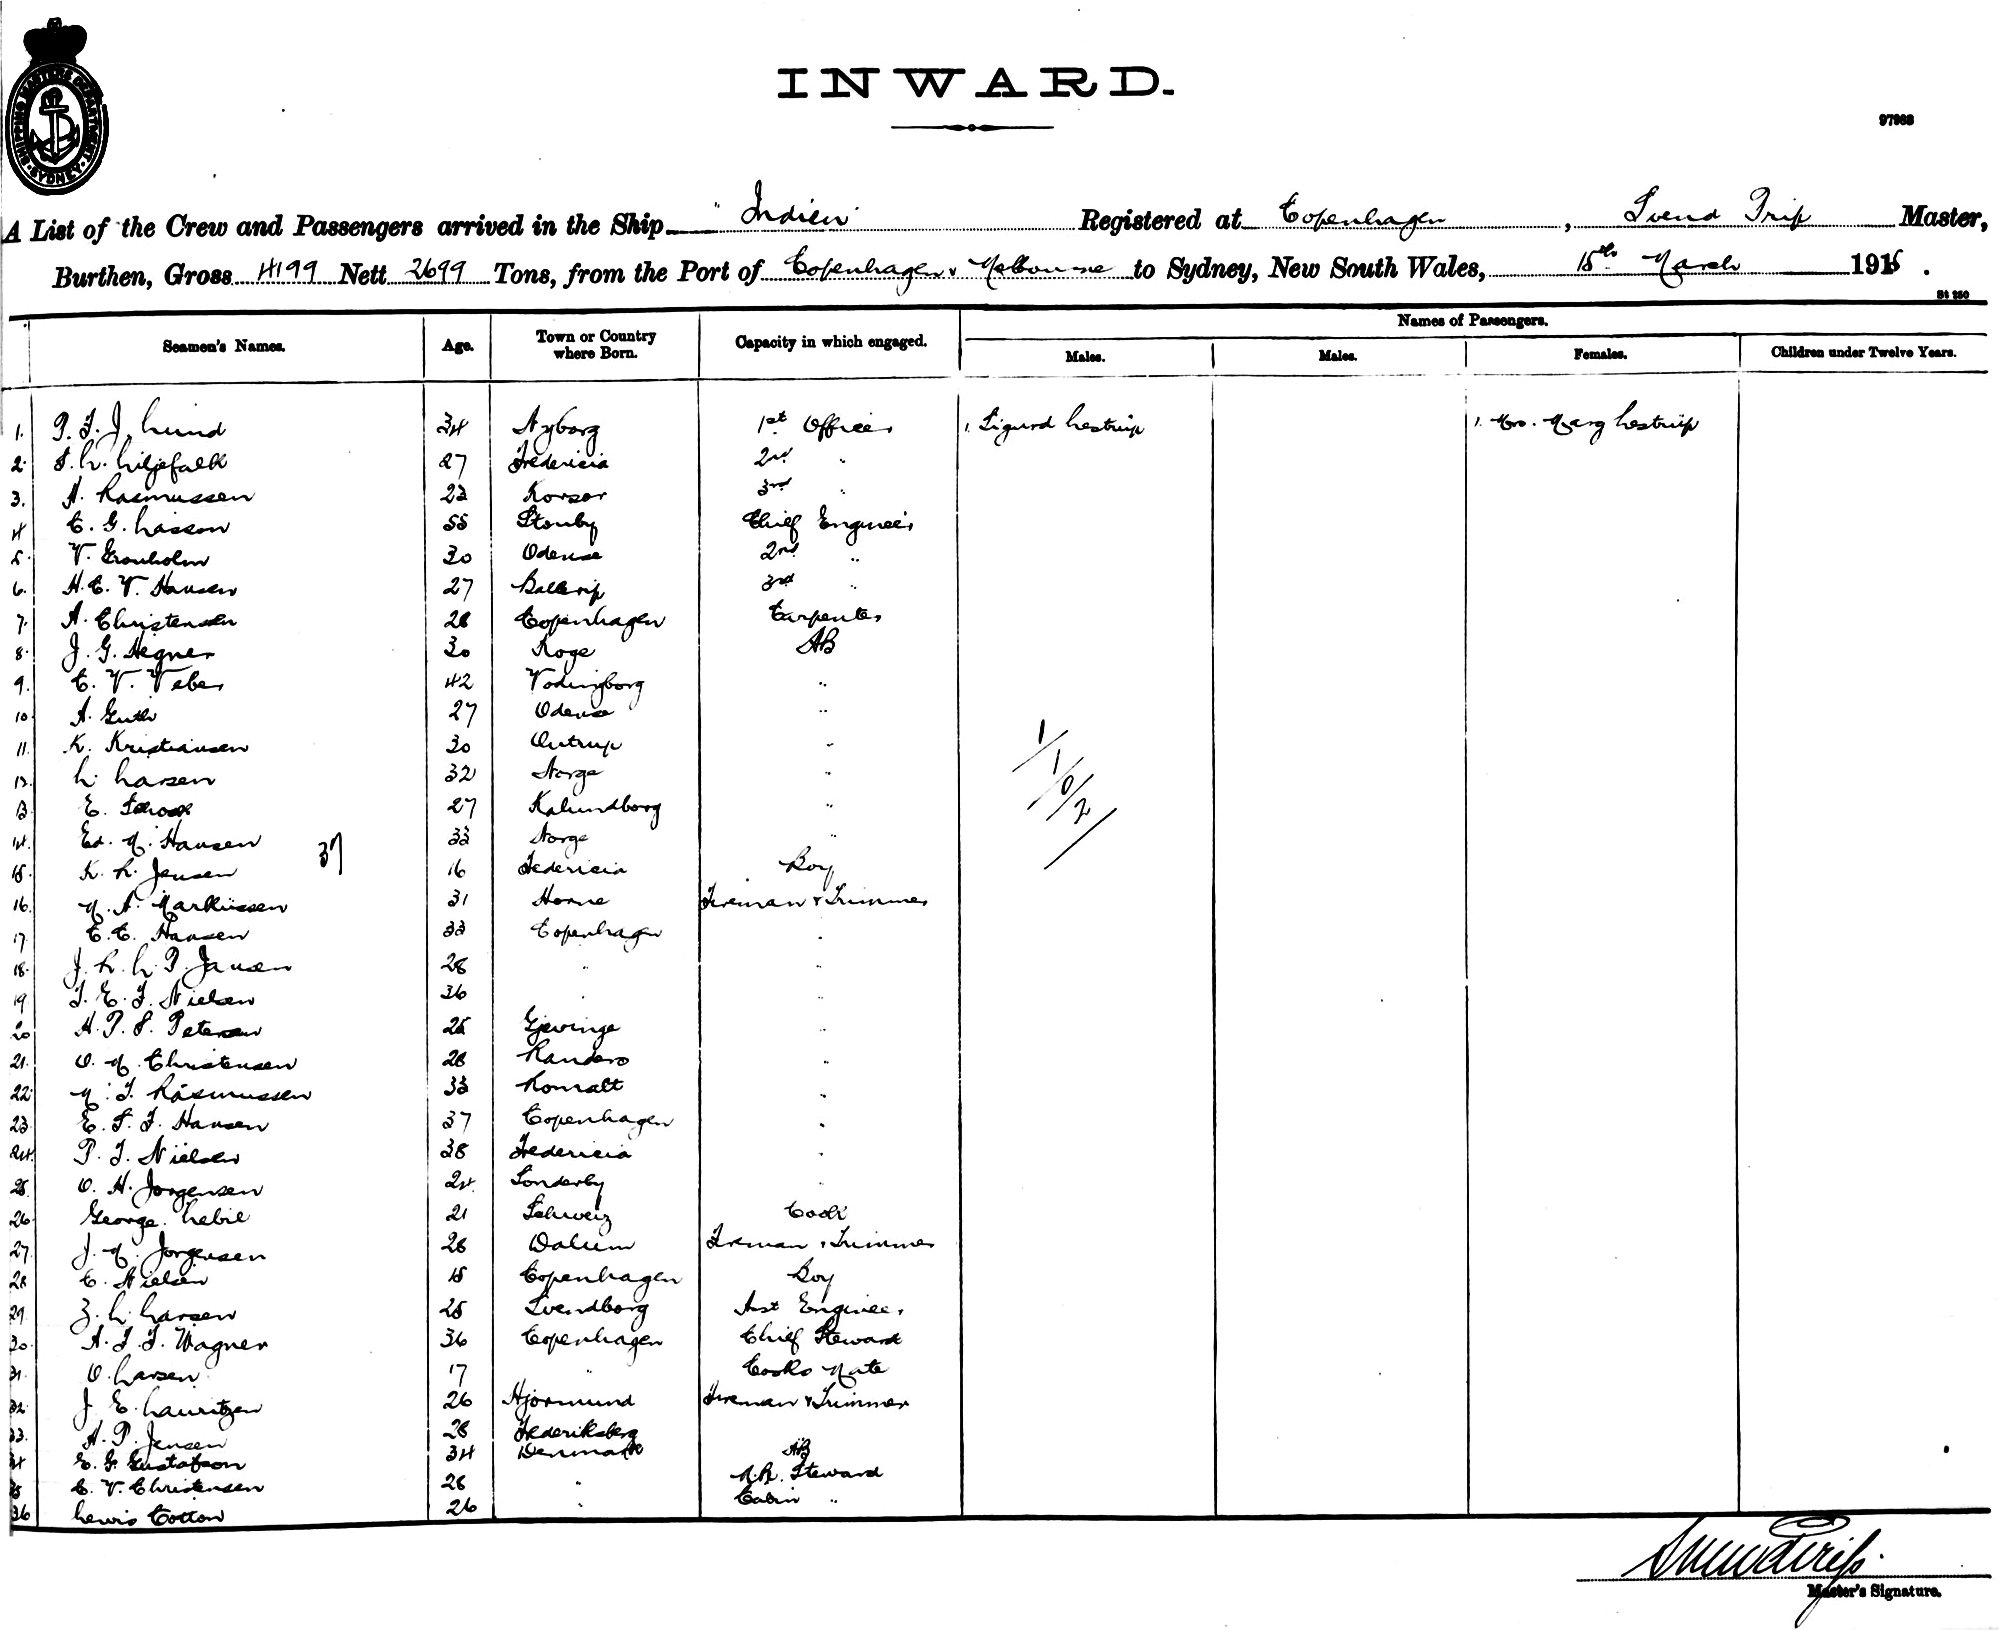 SHIPPING MASTERS DEPARTMENT SYDNEY
INWARD.
97968
A List of the Crew and Passengers arrived in the Ship "Indien" Registered at Copenhagen, Svend Trip Master,
Burthen, Gross 4199 Nett 2699 Tons, from the Port of Copenhagen & Melbourne to Sydney, New South Wales, 15th March 1915.
St 250
Names of Passengers.
Seamen's Names. Age. Town or Country where Born. Capacity in which engaged. Males. Males. Females. Children under Twelve Years.
1. P. F. J. Lund 34 Nyborg 1st Officer 1. Sigurd Lestrup 1. Mrs. Marg Lestrup
2. S. L. Liljefalk 27 Fredericia 2nd "
3. A. Rasmussen 23 Korsor 3rd "
4 C. G. Lasson 55 Stouby Chief Engineer
5. V. Gronholm 30 Odense 2nd "
6. H. C. V. Hansen 27 Ballerup 3rd "
7. A. Christensen 28 Copenhagen Carpenter
8. J. G. Hegner 30 Koge AB
9. C. V. Veber 42 Vodingborg "
10. A. Guth 27 Odense "
11. K. Kristiansen 30 Outrup "
12. L. Larsen 32 Norge "
13 E. 27 Kalundborg "
14. Ed. M. Hansen 33 Norge "
37
1/1/0/2/
15. K. L. Jensen 16 Fredericia Boy
16. M. A. Markussen 31 Horne Fireman & Trimmer
17. C. C. Hansen 33 Copenhagen "
18. J. L. L. P. Jansen 28 " "
19 T. E. F. Nielsen 36 " "
20 H. P. S. Petersen 25 Gjevinge "
21. O. M. Christensen 28 Randers "
22. M. T. Rasmussen 33 "
23 E. S. F. Hansen 37 Copenhagen "
24. P. F. Nielsen 38 Fredericia "
25. O. H. Jorgensen 24 Sonderby "
26 George Lebie 21 Schweiz Cook
27. J. M. Jorgensen 28 Dalum Fireman & Trimmer
28 C. Nielsen 15 Copenhagen Boy
29. Z. L. Larsen 25 Svendborg Asst Engineer
30. A. F. F. Wagner 36 Copenhagen Chief Steward
31. O. Larsen 17 " Cooks Mate
32. J. E. Lauritzen 26 Hjormund Fireman & Trimmer
33. A. P. Jensen 28 Frederiksberg "
34 E. G. Gustafson 34 Denmark AB
35 C. V. Christensen 28 " M.R. Steward
36 Lewis Cotton 26 " Cabin "
Svend Trip.
Master's Signature.